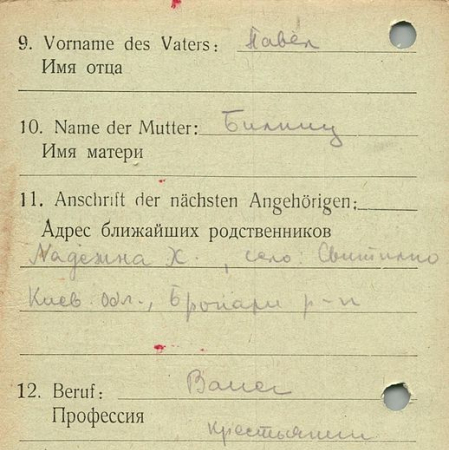 9. Vorname des Vaters: Павел
Имя отца
10. Name der Mutter:
Имя матери
11. Anschrift der nächsten Angehörigen:
Адрес ближайших родственников
Х., село: Свитильно
Киев. обл., р-н
12. Beruf: Bauer
Профессия
крестьянин